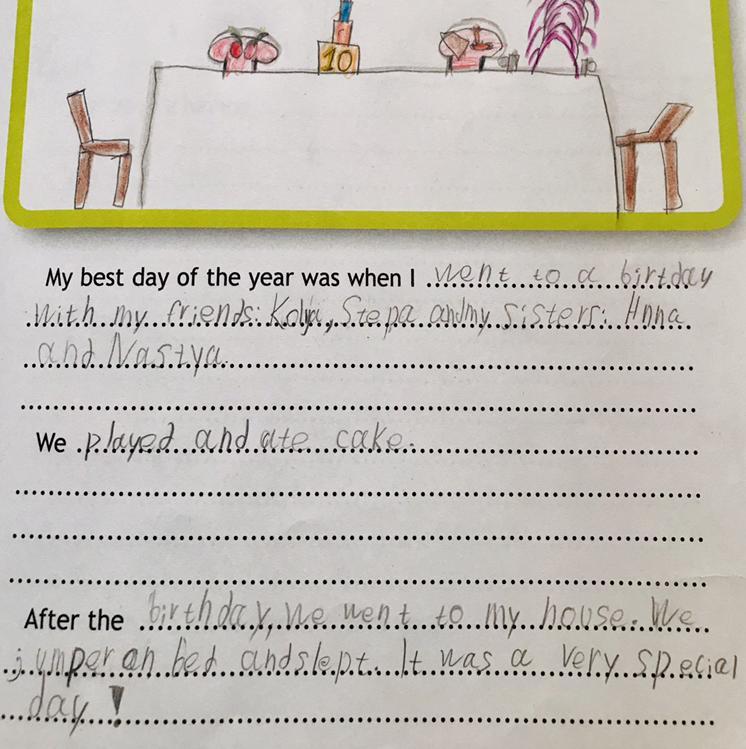 10
My best day of the year was when I went to a birtday
with my friends: Kolja, Stepa and my sisters: Anna
and Nastya.
We played and ate cake.
After the birthday, we went to my house. We
jumper on bed and slept. It was a very special
day!